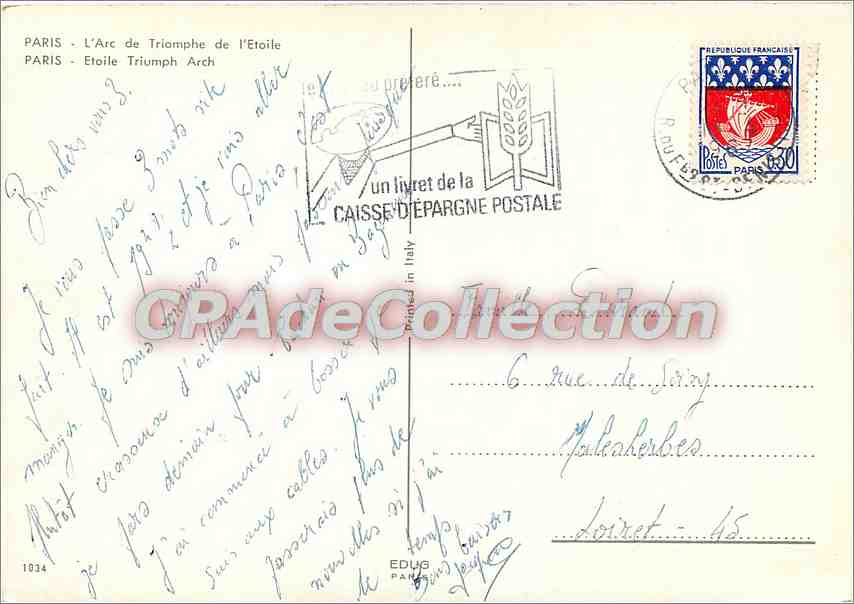 PARIS - L'Arc de Triomphe de l'Etoile
PARIS - Etoile Triumph Arch
Bien chers vous 3.
Je vous passe 3 mots vite
fait. Il est et je vais aller
manger. Je suis toujours à Paris, c'est
plutôt crasseux d'ailleurs mais
je pars demain pour
j'ai commencé à bosser
suis aux cables. Je vous
passerais plus de
nouvelles si j'ai
le temps
Bons baisers
1034
EDUG
PARIS
Printed in Italy
préféré....
un livret de la
CAISSE D'EPARGNE POSTALE
REPUBLIQUE FRANÇAISE
POSTES PARIS 0,30
CPAdeCollection
6 rue de
Malesherbes
Loiret - 45